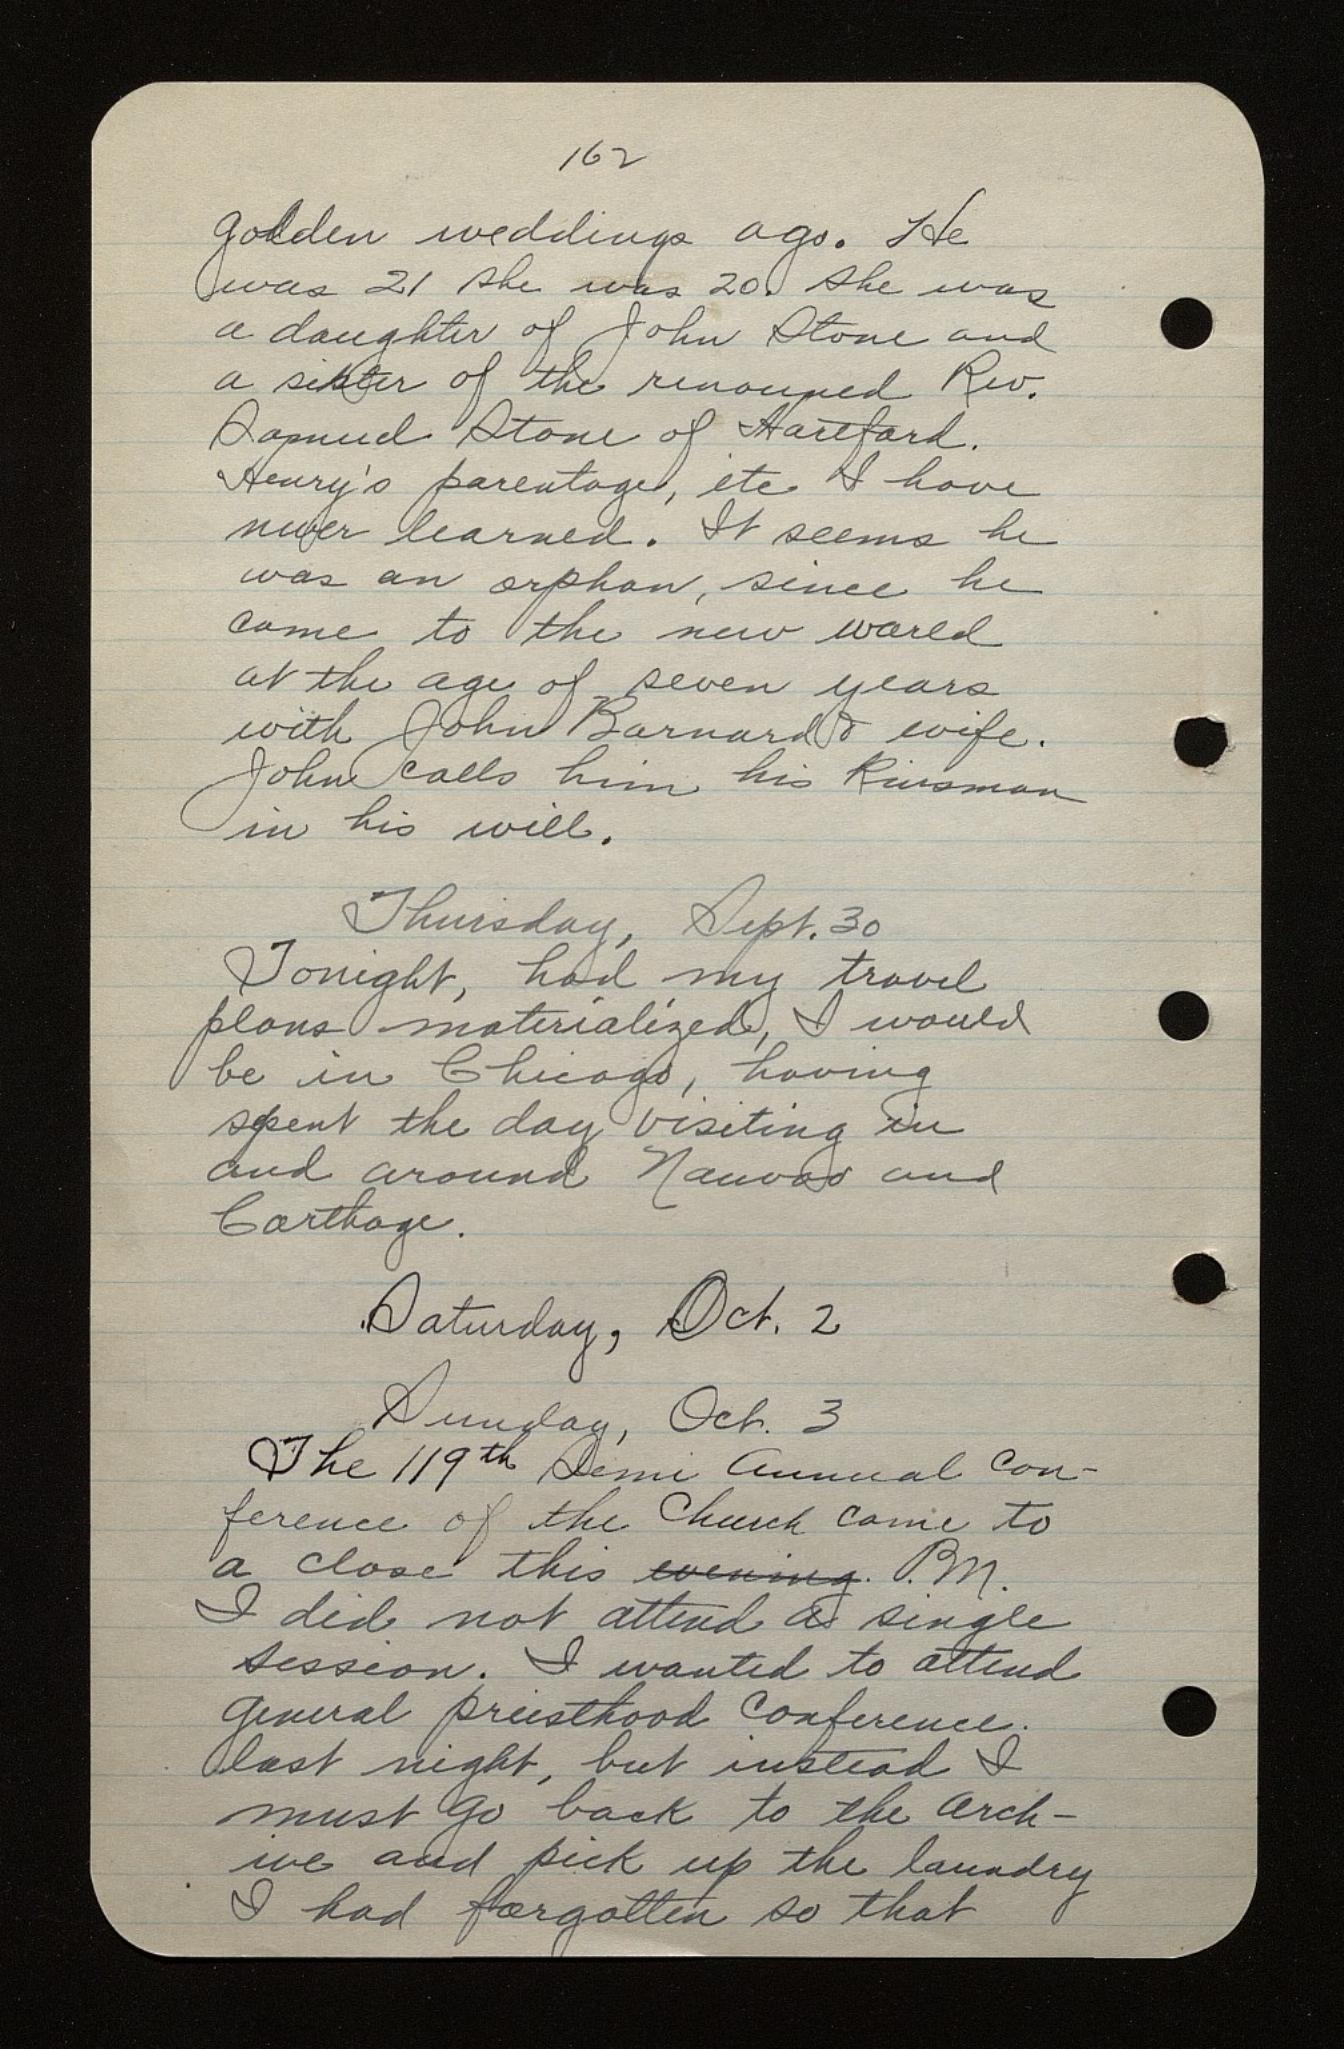 162
golden weddings ago. He
was 21 she was 20. She was
a daughter of John Stone and
a sister of the renouned Rev.
Samuel Stone of Hartford.
Henry's parentage, etc I have
never learned. It seems he
was an orphan, since he
came to the new world
at the age of seven years
with John Barnard & wife.
John calls him his Kinsman
in his will.
Thursday, Sept. 30
Tonight, had my travel
plans materialized, I would
be in Chicago, having
spent the day visiting in
and around Nauvoo and
Carthage.
Saturday, Oct. 2
Sunday, Oct. 3
The 119th Semi Annual Con-
ference of the Church came to
a close this evening. P.M.
I did not attend a single
session. I wanted to attend
general priesthood conference.
last night, but instead I
must go back to the Arch-
ive and pick up the laundry
I had forgotten so that